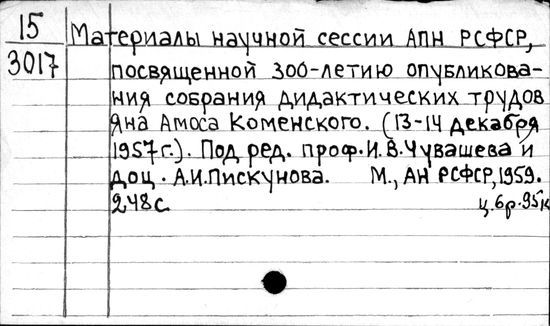 15
3017
Материалы научной сессии АПН РСФСР,
посвященной 300-летию опубликова-
ния собрания дидактических трудов
Яна Амоса Коменского. (13-14 декабря
1957г.). Под ред. проф. И.В.Чувашева и
доц. А.И.Пискунова. М., АН РСФСР, 1959.
248с ц. 6р. 95к